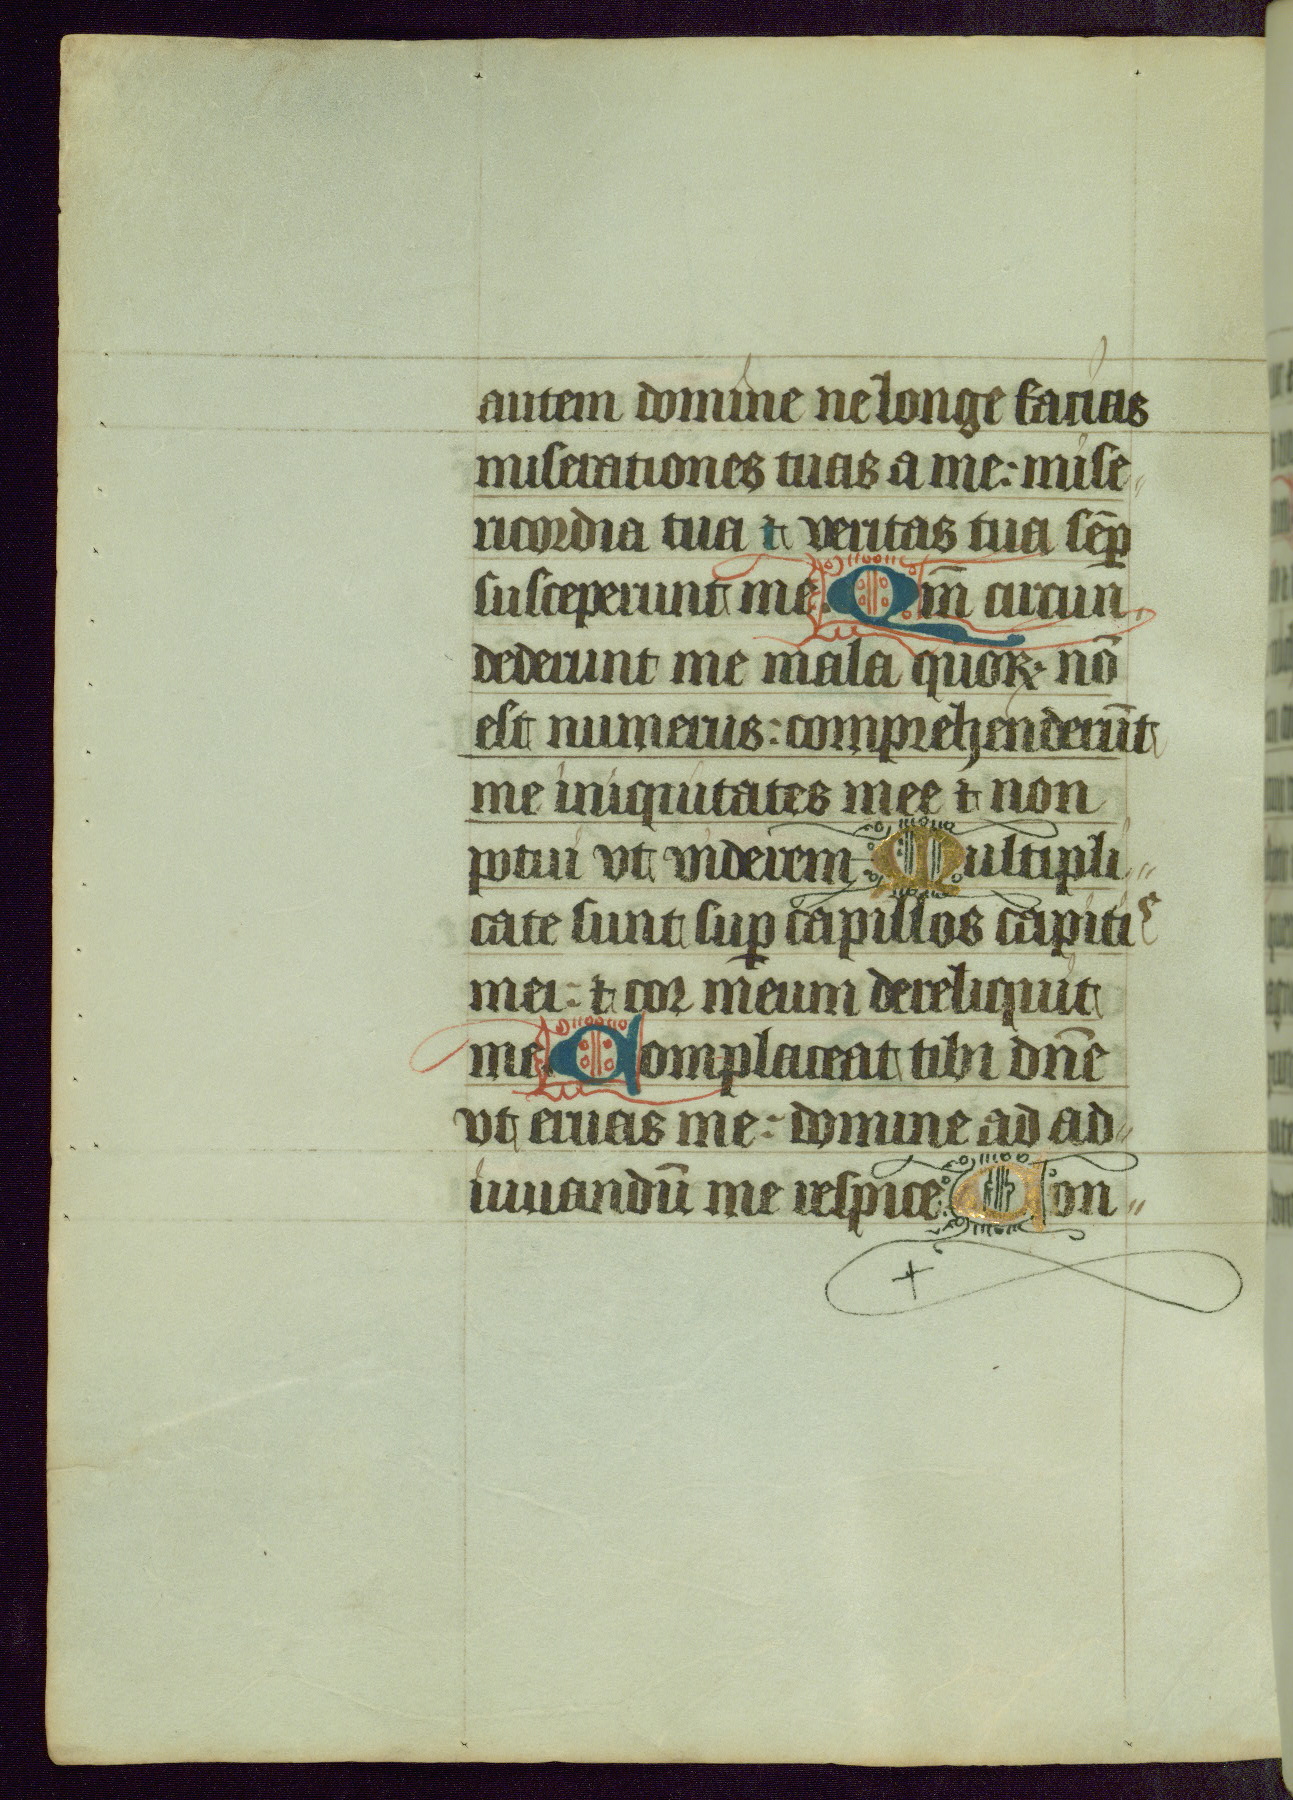 autem domine ne longe facias
miserationes tuas a me: mise〃
ricordia tua ⁊ veritas tua sēp
susceperunt me. Qm̄ circun〃
dederunt me mala quoꝝ· nō
est numerus: comprehenderūt
me iniquitates mee ⁊ non
potui vt viderem Multipli〃
cate sunt suꝑ capillos capitis
mei: ⁊ cor meum dereliquit
me Complaceat tibi dn̄e
vt eruas me: domine ad ad〃
iuuandū me respice Con〃